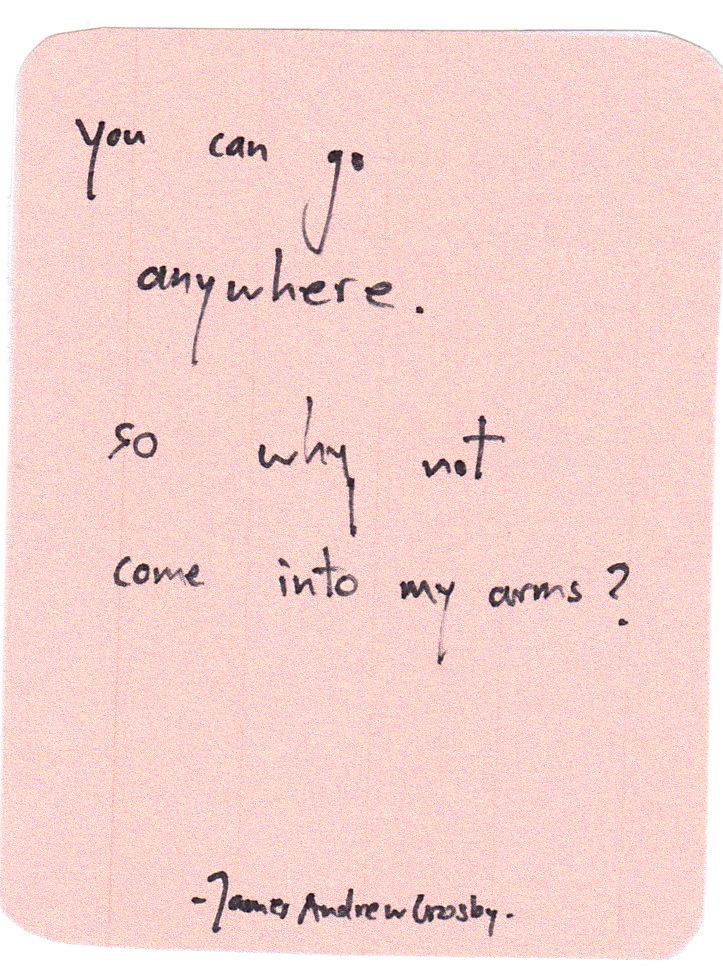 you can go
anywhere.
so why not
come into my arms?
-James Andrew Crosby.